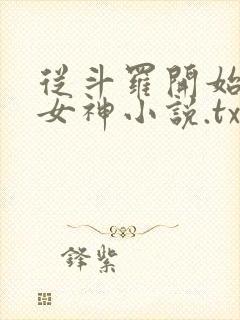 從斗羅開始
女神小說.tx
鋒紫